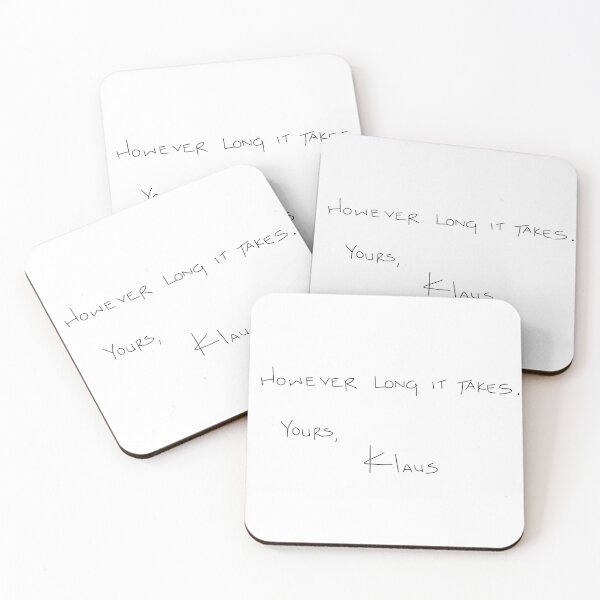 HOWEVER LONG IT TAKES
HOWEVER LONG IT TAKES.
YOURS,
Klaus
HOWEVER LONG IT TAKES.
YOURS,
Klaus
HOWEVER LONG IT TAKES.
YOURS,
Klaus